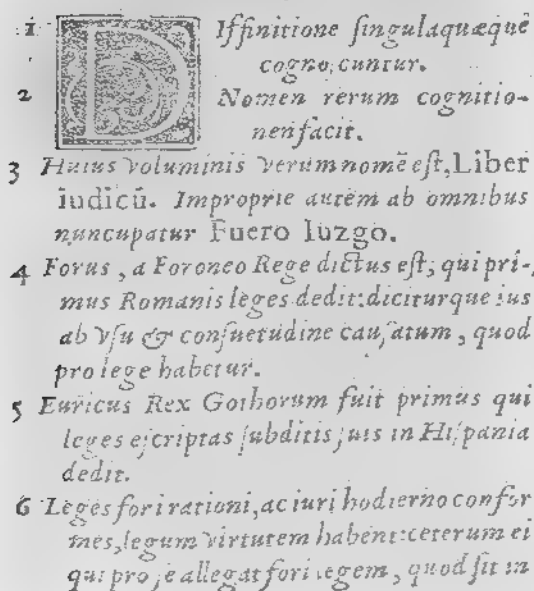 1 DIffinitione singulaquæque
cognoscuntur.
2 Nomen rerum cognitio-
nen facit.
3 Huius voluminis verum nomē est, Liber
iudicū. Improprie autem ab omnibus
nuncupatur Fuero Iuzgo.
4 Forus, a Foroneo Rege dictus est; qui pri-
mus Romanis leges dedit: diciturque ius
ab vsu & consuetudine causatum, quod
pro lege habetur.
5 Euricus Rex Gothorum fuit primus qui
leges escriptas subditis suis in Hispania
dedit.
6 Leges fori rationi, ac iuri hodierno confor
mes, legum virtutem habent: ceterum ei
qui pro se allegat fori legem, quod sit in